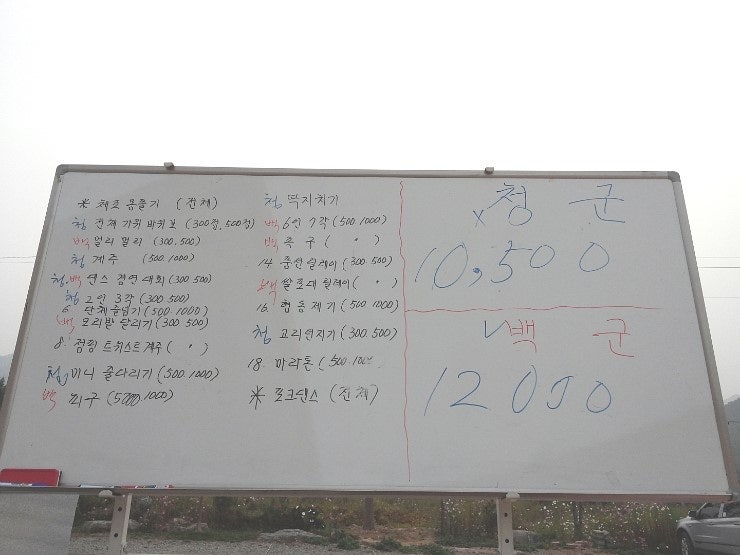 ※ 체조 몸풀기 (전체)
청 전체 가위 바위 보 (300점, 500점)
백 멀리 멀리 (300.500)
청 계주 (500.1000)
청.백 댄스 경연대회 (300.500)
청 2인 3각 (300.500)
6. 단체줄넘기 (500.1000)
백 오리발 달리기 (300.500)
8. 점핑 트위스트계주 ( 〃 )
청 미니 줄다리기 (500.1000)
백 피구 (500.1000)
청 딱지치기
백 6인 7각 (500.1000)
백 족구 ( 〃 )
14. 풍선릴레이 (300.500)
백 빨로대 릴레이 ( 〃 )
16. 협동제기 (500.1000)
청 고리던지기 (300.500)
18. 마라톤 (500.1000
※ 포크댄스 (전체)
청 군
10,500
백 군
12000